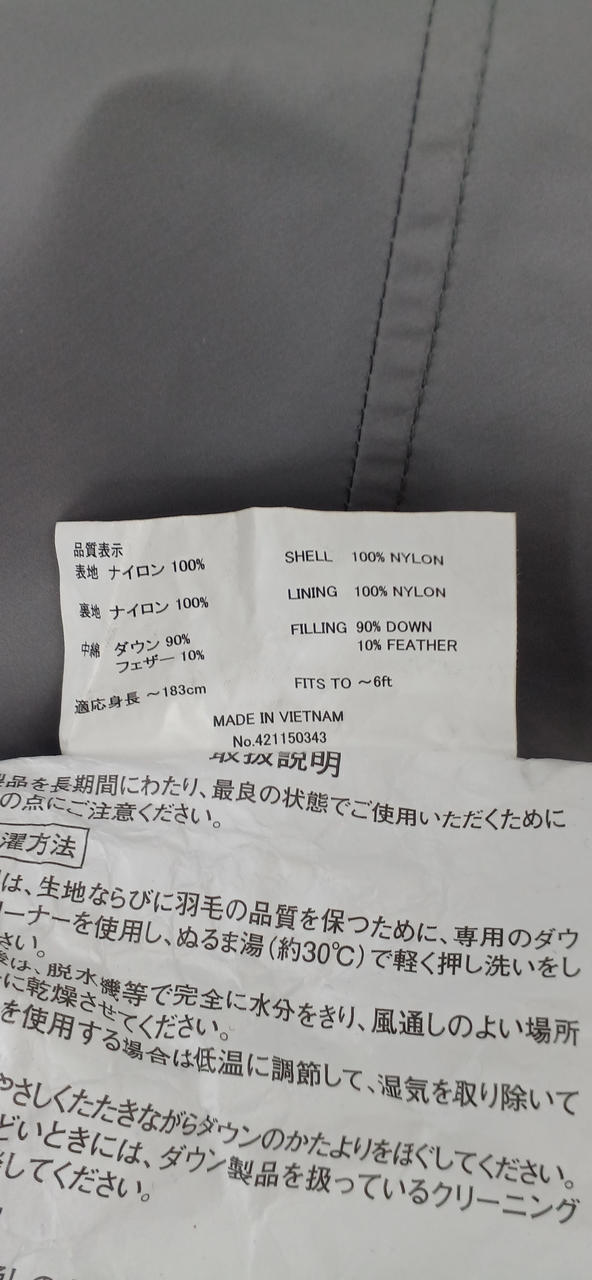 品質表示
表地 ナイロン 100%
裏地 ナイロン 100%
中綿 ダウン 90%
フェザー 10%
適応身長 ～183cm
SHELL 100% NYLON
LINING 100% NYLON
FILLING 90% DOWN
10% FEATHER
FITS TO ～6ft
MADE IN VIETNAM
No.421150343
取扱説明
製品を長期間にわたり、最良の状態でご使用いただくために
の点にご注意ください。
濯方法
は、生地ならびに羽毛の品質を保つために、専用のダウ
リーナーを使用し、ぬるま湯(約30℃)で軽く押し洗いをし
さい。
後は、脱水機等で完全に水分をきり、風通しのよい場所
に乾燥させてください。
を使用する場合は低温に調節して、湿気を取り除いて
やさしくたたきながらダウンのかたよりをほぐしてください。
どいときには、ダウン製品を扱っているクリーニング
してください。